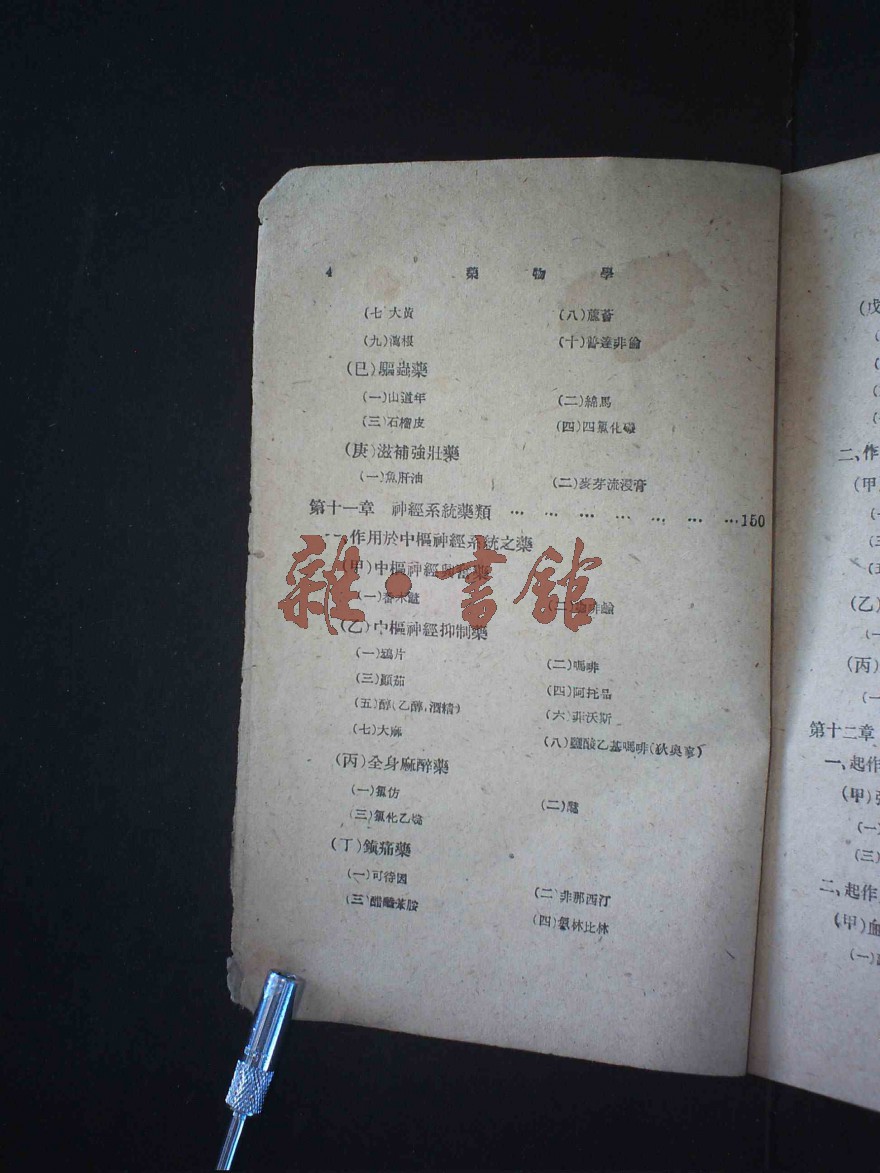 4 藥 物 學
(七)大黃 (八)蘆薈
(九)瀉根 (十)普達非倫
(巳)驅蟲藥
(一)山道年 (二)綿馬
(三)石榴皮 (四)四氯化碳
(庚)滋補強壯藥
(一)魚肝油 (二)麥芽流浸膏
第十一章 神經系統藥類 … … … … … … …150
一、作用於中樞神經系統之藥
(甲)中樞神經興奮藥
(一)番木鼈 (二)咖啡鹼
(乙)中樞神經抑制藥
(一)鴉片 (二)嗎啡
(三)顛茄 (四)阿托品
(五)醇(乙醇,酒精) (六)菲沃斯
(七)大麻 (八)鹽酸乙基嗎啡(狄奥寧)
(丙)全身麻醉藥
(一)氯仿 (二)醚
(三)氯化乙烷
(丁)鎮痛藥
(一)可待因 (二)非那西汀
(三)醋醯苯胺 (四)氨林比林
雜·書館
二、作
(甲)
(乙)
(丙)
第十二章
一、起作
(甲)
(一)
(三)
二、起作
(甲)血
(一)